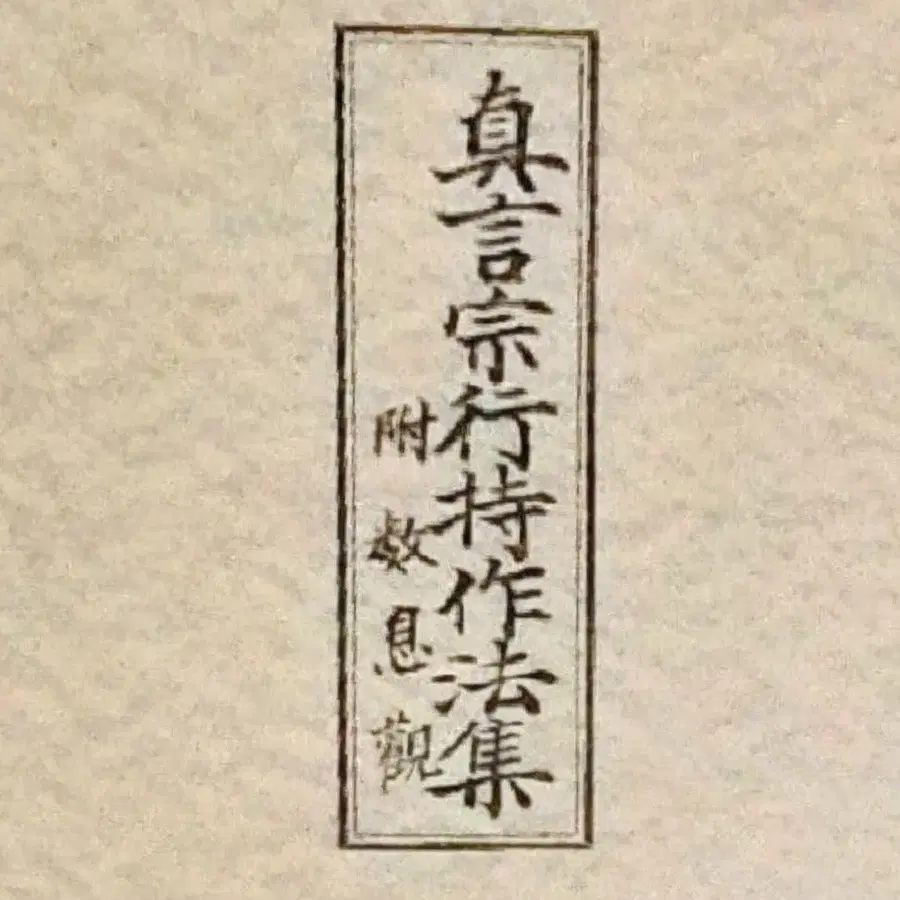 真言宗行持作法集
附數息觀